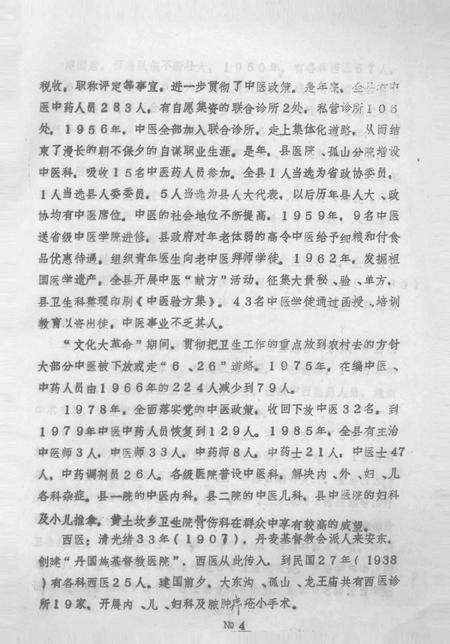 税收，职称评定等事宜，进一步贯彻了中医政策。是年末，全县有中
医中药人员283人，有自愿集资的联合诊所2处，私营诊所106
处。1956年，中医全部加入联合诊所，走上集体化道路，从而结
束了漫长的朝不保夕的自谋职业生涯。是年，县医院、孤山分院增设
中医科，吸收15名中医药人员参加。全县1人当选为省政协委员，
1人当选县人委委员，5人当选为县人大代表，以后历年县人大、政
协均有中医席位。中医的社会地位不断提高。1959年，9名中医
送省级中医学院进修，县政府对年老体弱的高令中医给予细粮和付食
品优惠待遇，组织青年医生向老中医拜师学徒。1962年，发掘祖
国医学遗产，全县开展中医“献方”活动，征集大量秘、验、单方，
县卫生科整理印刷《中医验方集》。43名中医学徒通过函授、培训
教育以资出徒，中医事业不乏其人。
“文化大革命”期间，贯彻把卫生工作的重点放到农村去的方针
大部分中医被下放或走“6、26”道路，1975年，在编中医、
中药人员由1966年的224人减少到79人。
1978年，全面落实党的中医政策，收回下放中医32名，到
1979年中医中药人员恢复到129人。1985年，全县有主治
中医师3人，中医师33人，中药师8人，中药士21人，中医士47
人，中药调剂员26人。各级医院普设中医科，解决内、外、妇、儿
各科杂症。县一院的中医内科，县二院的中医儿科，县中医院的妇科
及小儿推拿，黄土坎乡卫生院骨伤科在群众中享有较高的威望。
西医：清光绪33年（1907），丹麦基督教会派人来安东，
创建“丹国施基督教医院”，西医从此传入。到民国27年（1938
）有各科西医25人。建国前夕，大东沟、孤山、龙王庙共有西医诊
所19家。开展内、儿、妇科及脓肿疖疮小手术。
№ 4